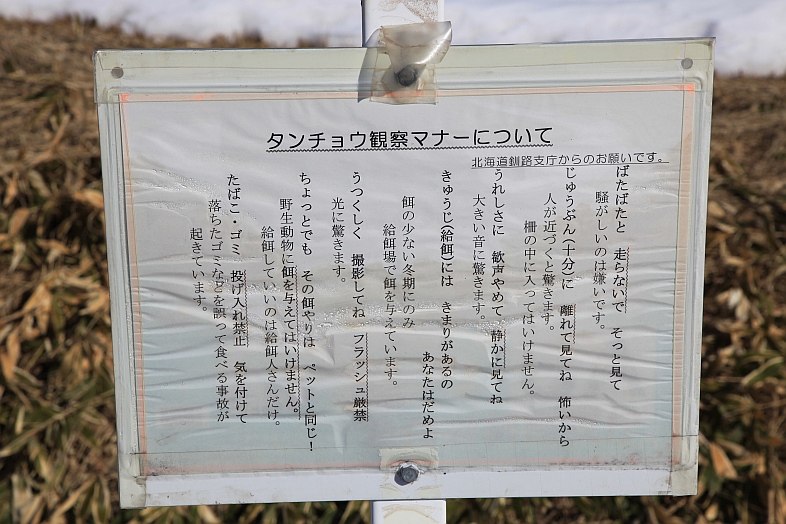 タンチョウ観察マナーについて
北海道釧路支庁からのお願いです。
ばたばたと　走らないで　そっと見て
騒がしいのは嫌いです。
じゅうぶん(十分)に　離れて見てね　怖いから
人が近づくと驚きます。
柵の中に入ってはいけません。
うれしさに　歓声やめて　静かに見てね
大きい音に驚きます。
きゅうじ(給餌)には　きまりがあるの　あなたはだめよ
餌の少ない冬期にのみ
給餌場で餌を与えています。
うつくしく　撮影してね　フラッシュ厳禁
光に驚きます。
ちょっとでも　その餌やりは　ペットと同じ！
野生動物に餌を与えてはいけません。
給餌していいのは給餌人さんだけ。
たばこ・ゴミ　投げ入れ禁止　気を付けて
落ちたゴミなどを誤って食べる事故が
起きています。